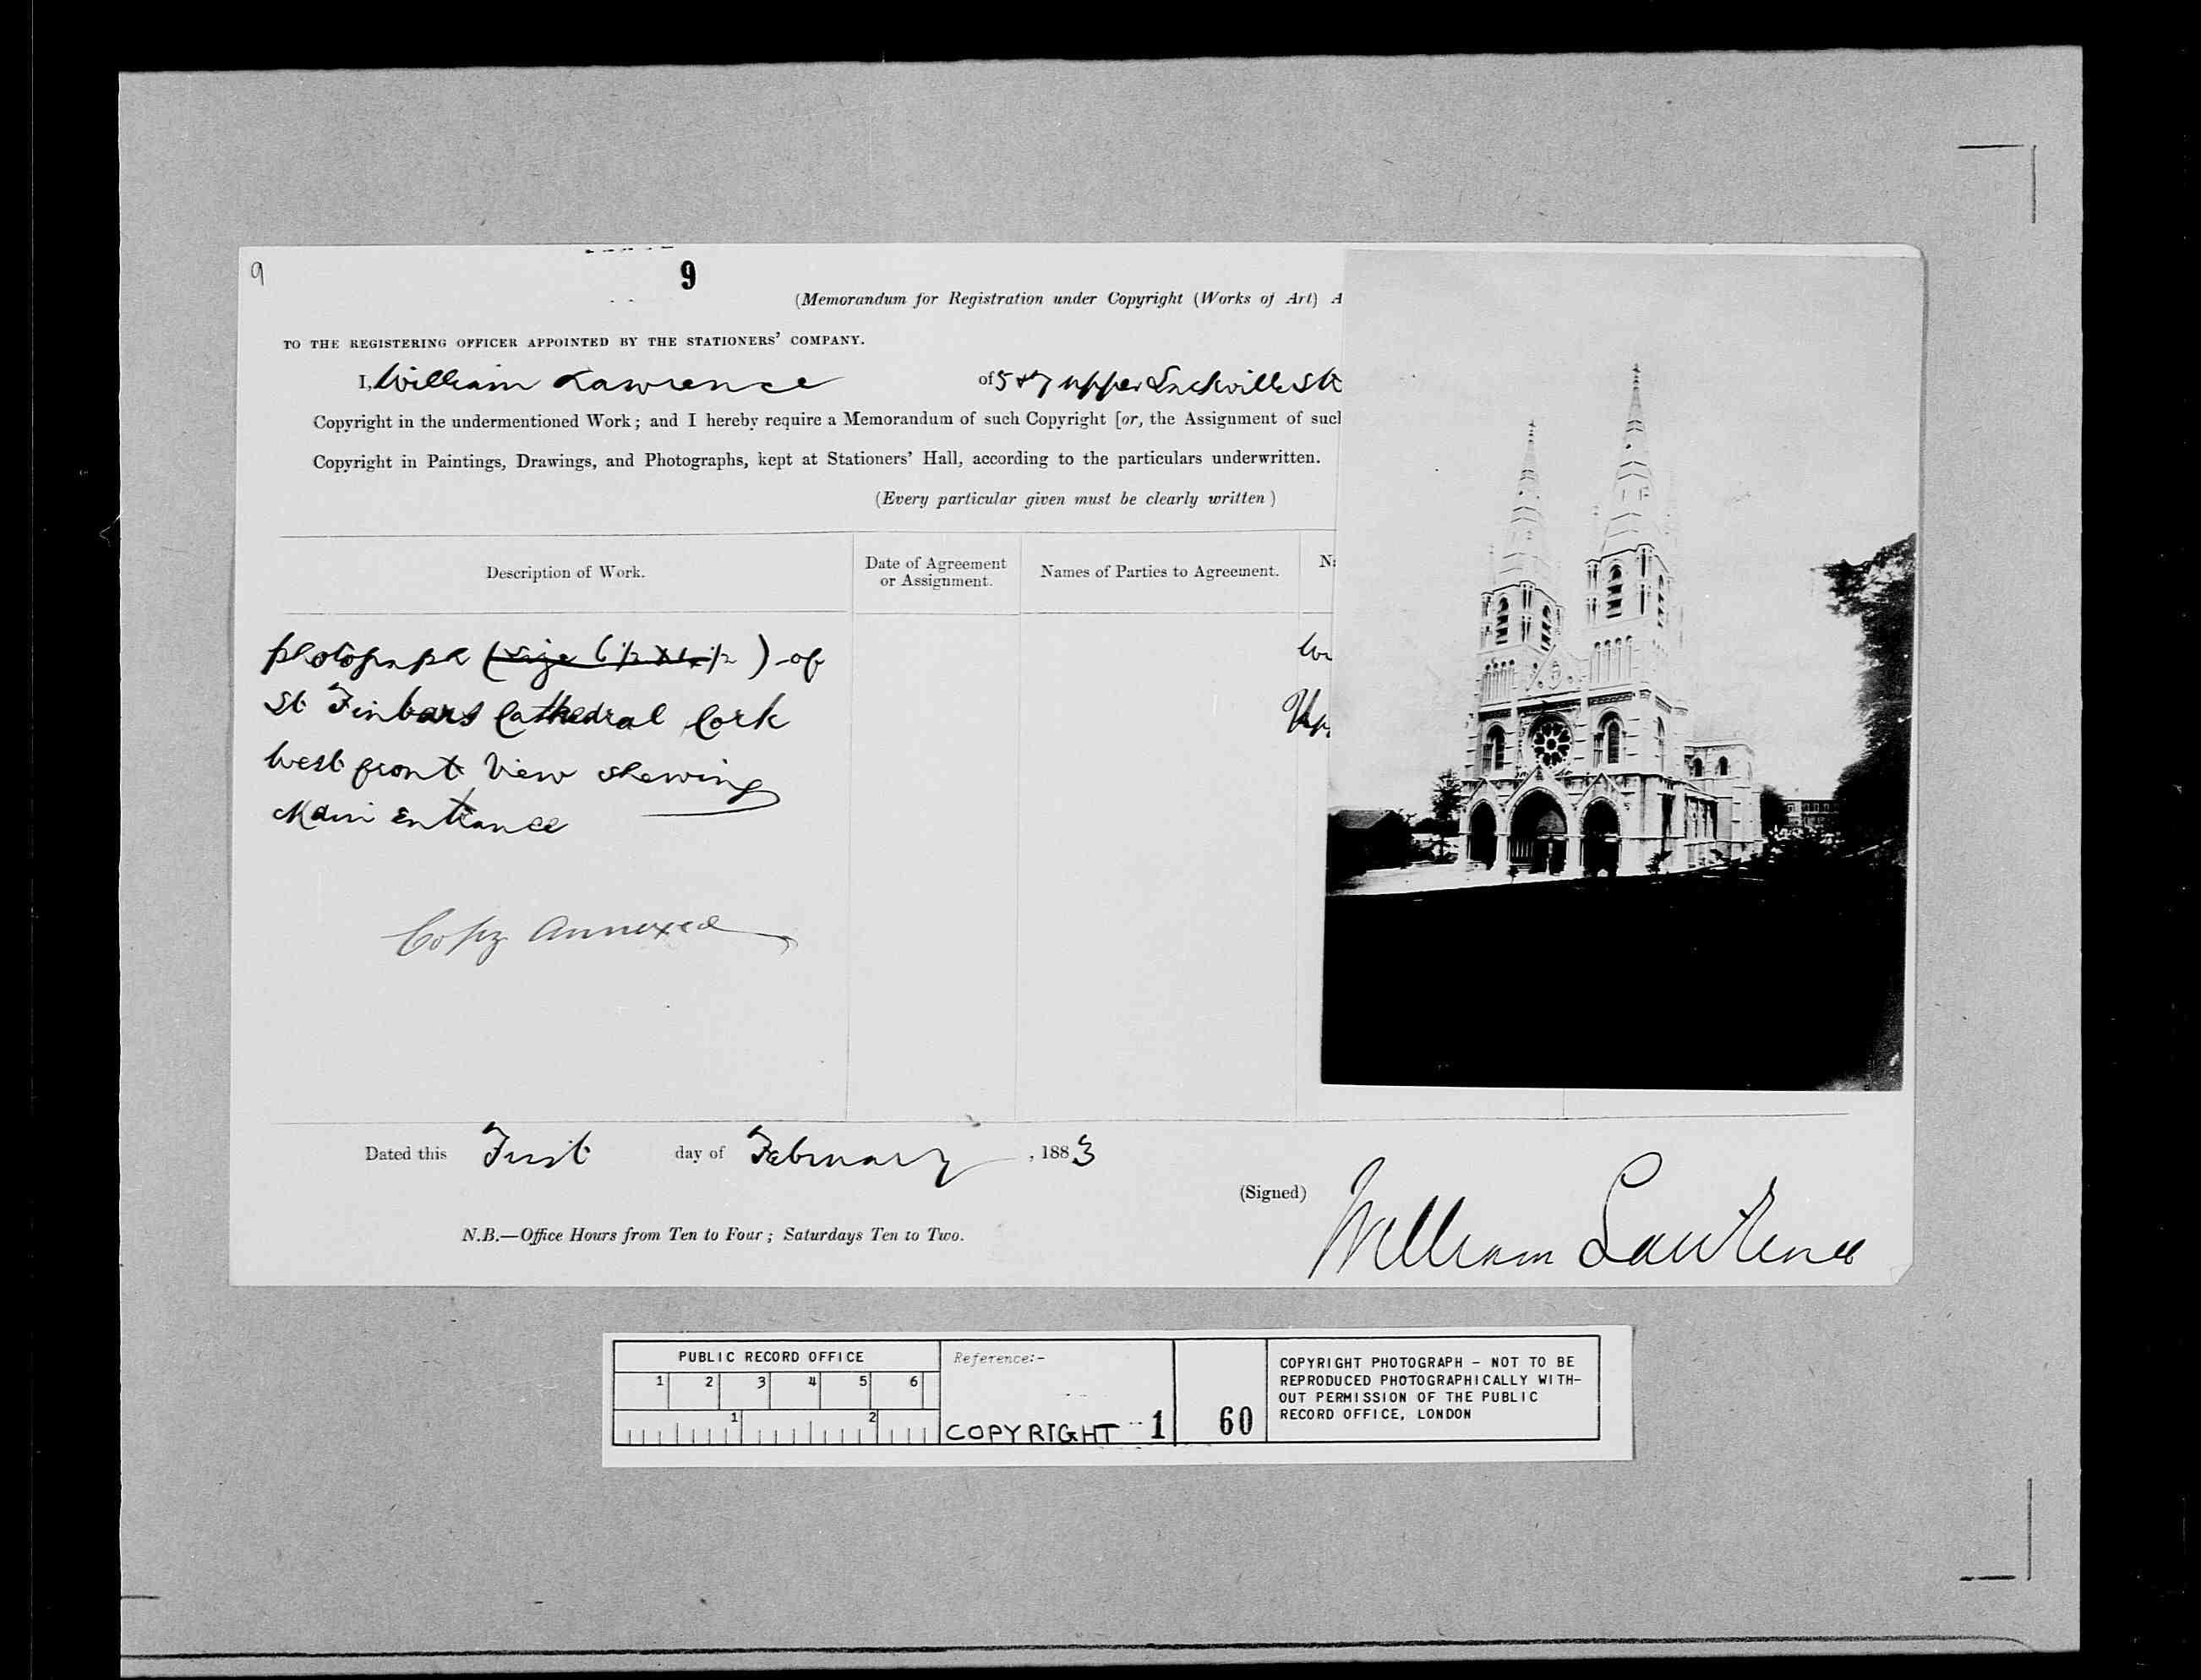 9
9
(Memorandum for Registration under Copyright (Works of Art) A
TO THE REGISTERING OFFICER APPOINTED BY THE STATIONERS' COMPANY.
I, William Lawrence of 5 & 7 upper Sackville St
Copyright in the undermentioned Work; and I hereby require a Memorandum of such Copyright [or, the Assignment of such
Copyright in Paintings, Drawings, and Photographs, kept at Stationers' Hall, according to the particulars underwritten.
(Every particular given must be clearly written)
Description of Work. Date of Agreement or Assignment. Names of Parties to Agreement. Na
photograph (size 6 1/2 x 4 1/2) of
St Finbars Cathedral Cork
West front View shewing
Main Entrance
Copy Annexed
Dated this First day of February, 1883
(Signed) William Lawrence
N.B.—Office Hours from Ten to Four; Saturdays Ten to Two.
PUBLIC RECORD OFFICE
1 2 3 4 5 6
1 2
Reference:-
COPYRIGHT 1 60
COPYRIGHT PHOTOGRAPH - NOT TO BE
REPRODUCED PHOTOGRAPHICALLY WITH-
OUT PERMISSION OF THE PUBLIC
RECORD OFFICE, LONDON